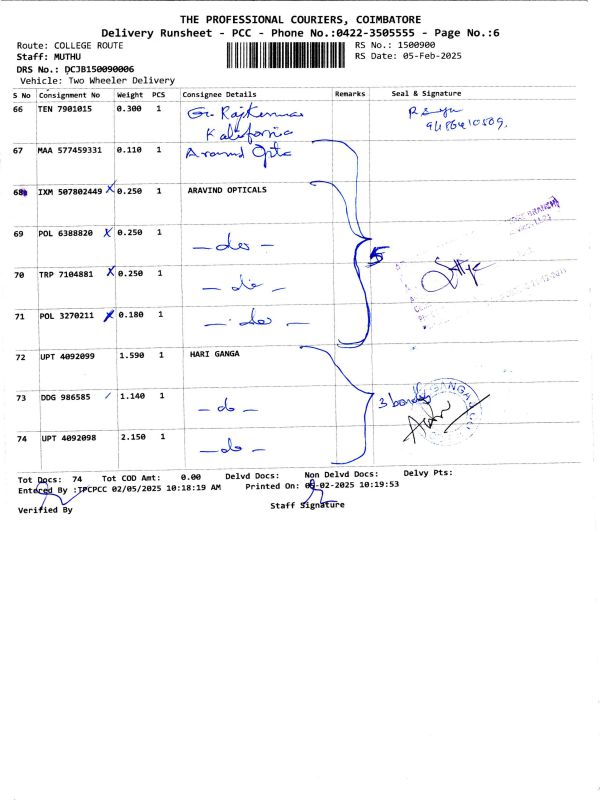 THE PROFESSIONAL COURIERS, COIMBATORE
Delivery Runsheet - PCC - Phone No.:0422-3505555 - Page No.:6
Route: COLLEGE ROUTE
RS No.: 1500900
Staff: MUTHU
RS Date: 05-Feb-2025
DRS No.: DCJB150090006
Vehicle: Two Wheeler Delivery
S No Consignment No Weight PCS Consignee Details Remarks Seal & Signature
66 TEN 7901015 0.300 1
67 MAA 577459331 0.110 1
68 IXM 507802449 X 0.250 1 ARAVIND OPTICALS
69 POL 6388820 X 0.250 1 — do —
5
70 TRP 7104881 X 0.250 1 — do —
71 POL 3270211 X 0.180 1 — do —
72 UPT 4092099 1.590 1 HARI GANGA
73 DDG 986585 1.140 1 — do —
3
74 UPT 4092098 2.150 1 — do —
Tot Docs: 74 Tot COD Amt: 0.00 Delvd Docs: Non Delvd Docs: Delvy Pts:
Entered By :TPCPCC 02/05/2025 10:18:19 AM Printed On: 05-02-2025 10:19:53
Verified By Staff Signature